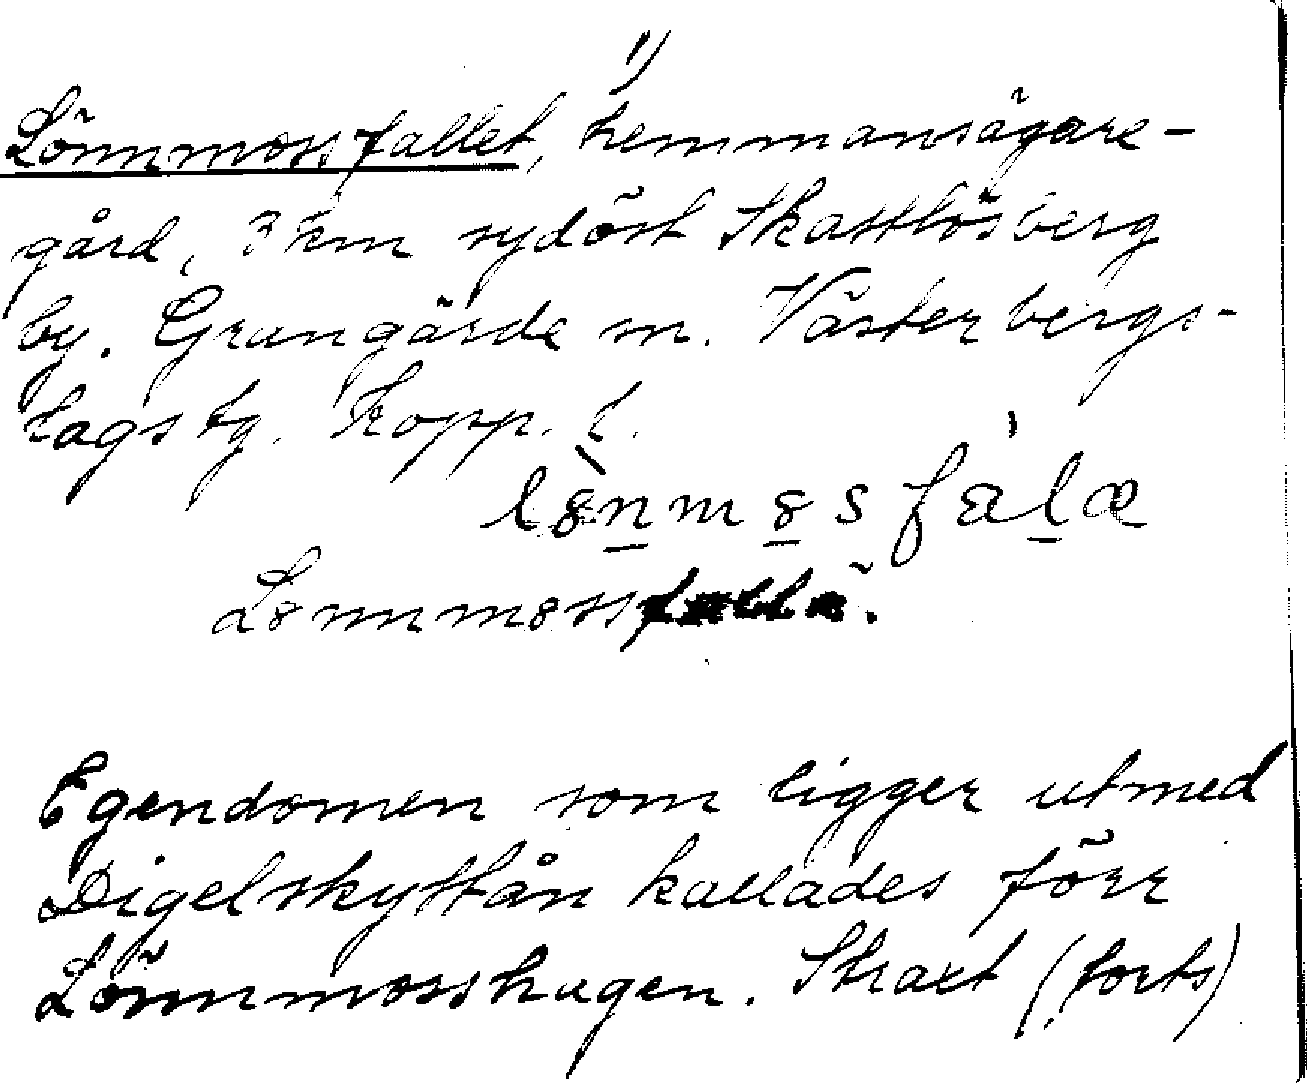 1)
Lönnmossfallet, hemmansägare-
gård, 3 km sydöst Skattlösberg
by. Grangärde sn. Västerbergs-
lags tg. Kopp. l.
lø̀nmøsfálæ
Lønnmøssfallä.
Egendomen som ligger utmed
Digelskyttån kallades förr
Lönnmosshagen. Straxt (forts)